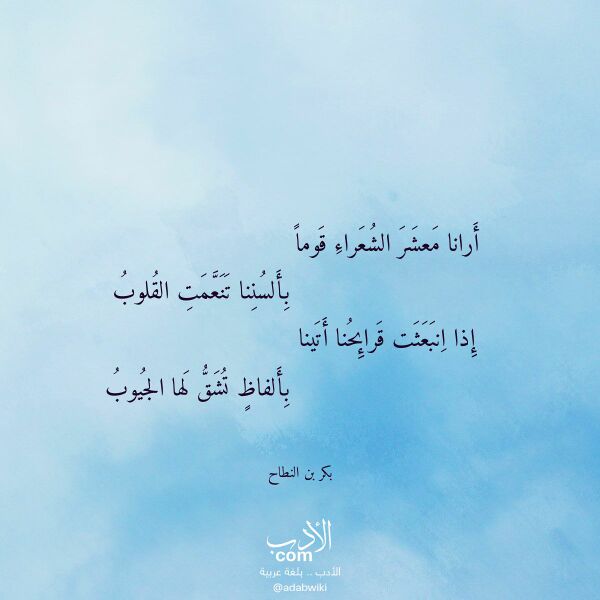 أَرانا مَعشَرَ الشُعَراءِ قَوماً
بِأَلسُنِنا تَنَعَّمَتِ القُلوبُ
إِذا اِنبَعَثَت قَرائِحُنا أَتَينا
بِأَلفاظٍ تُشَقُّ لَها الجُيوبُ
بكر بن النطاح
الأدب
com
الأدب .. بلغة عربية
@adabwiki